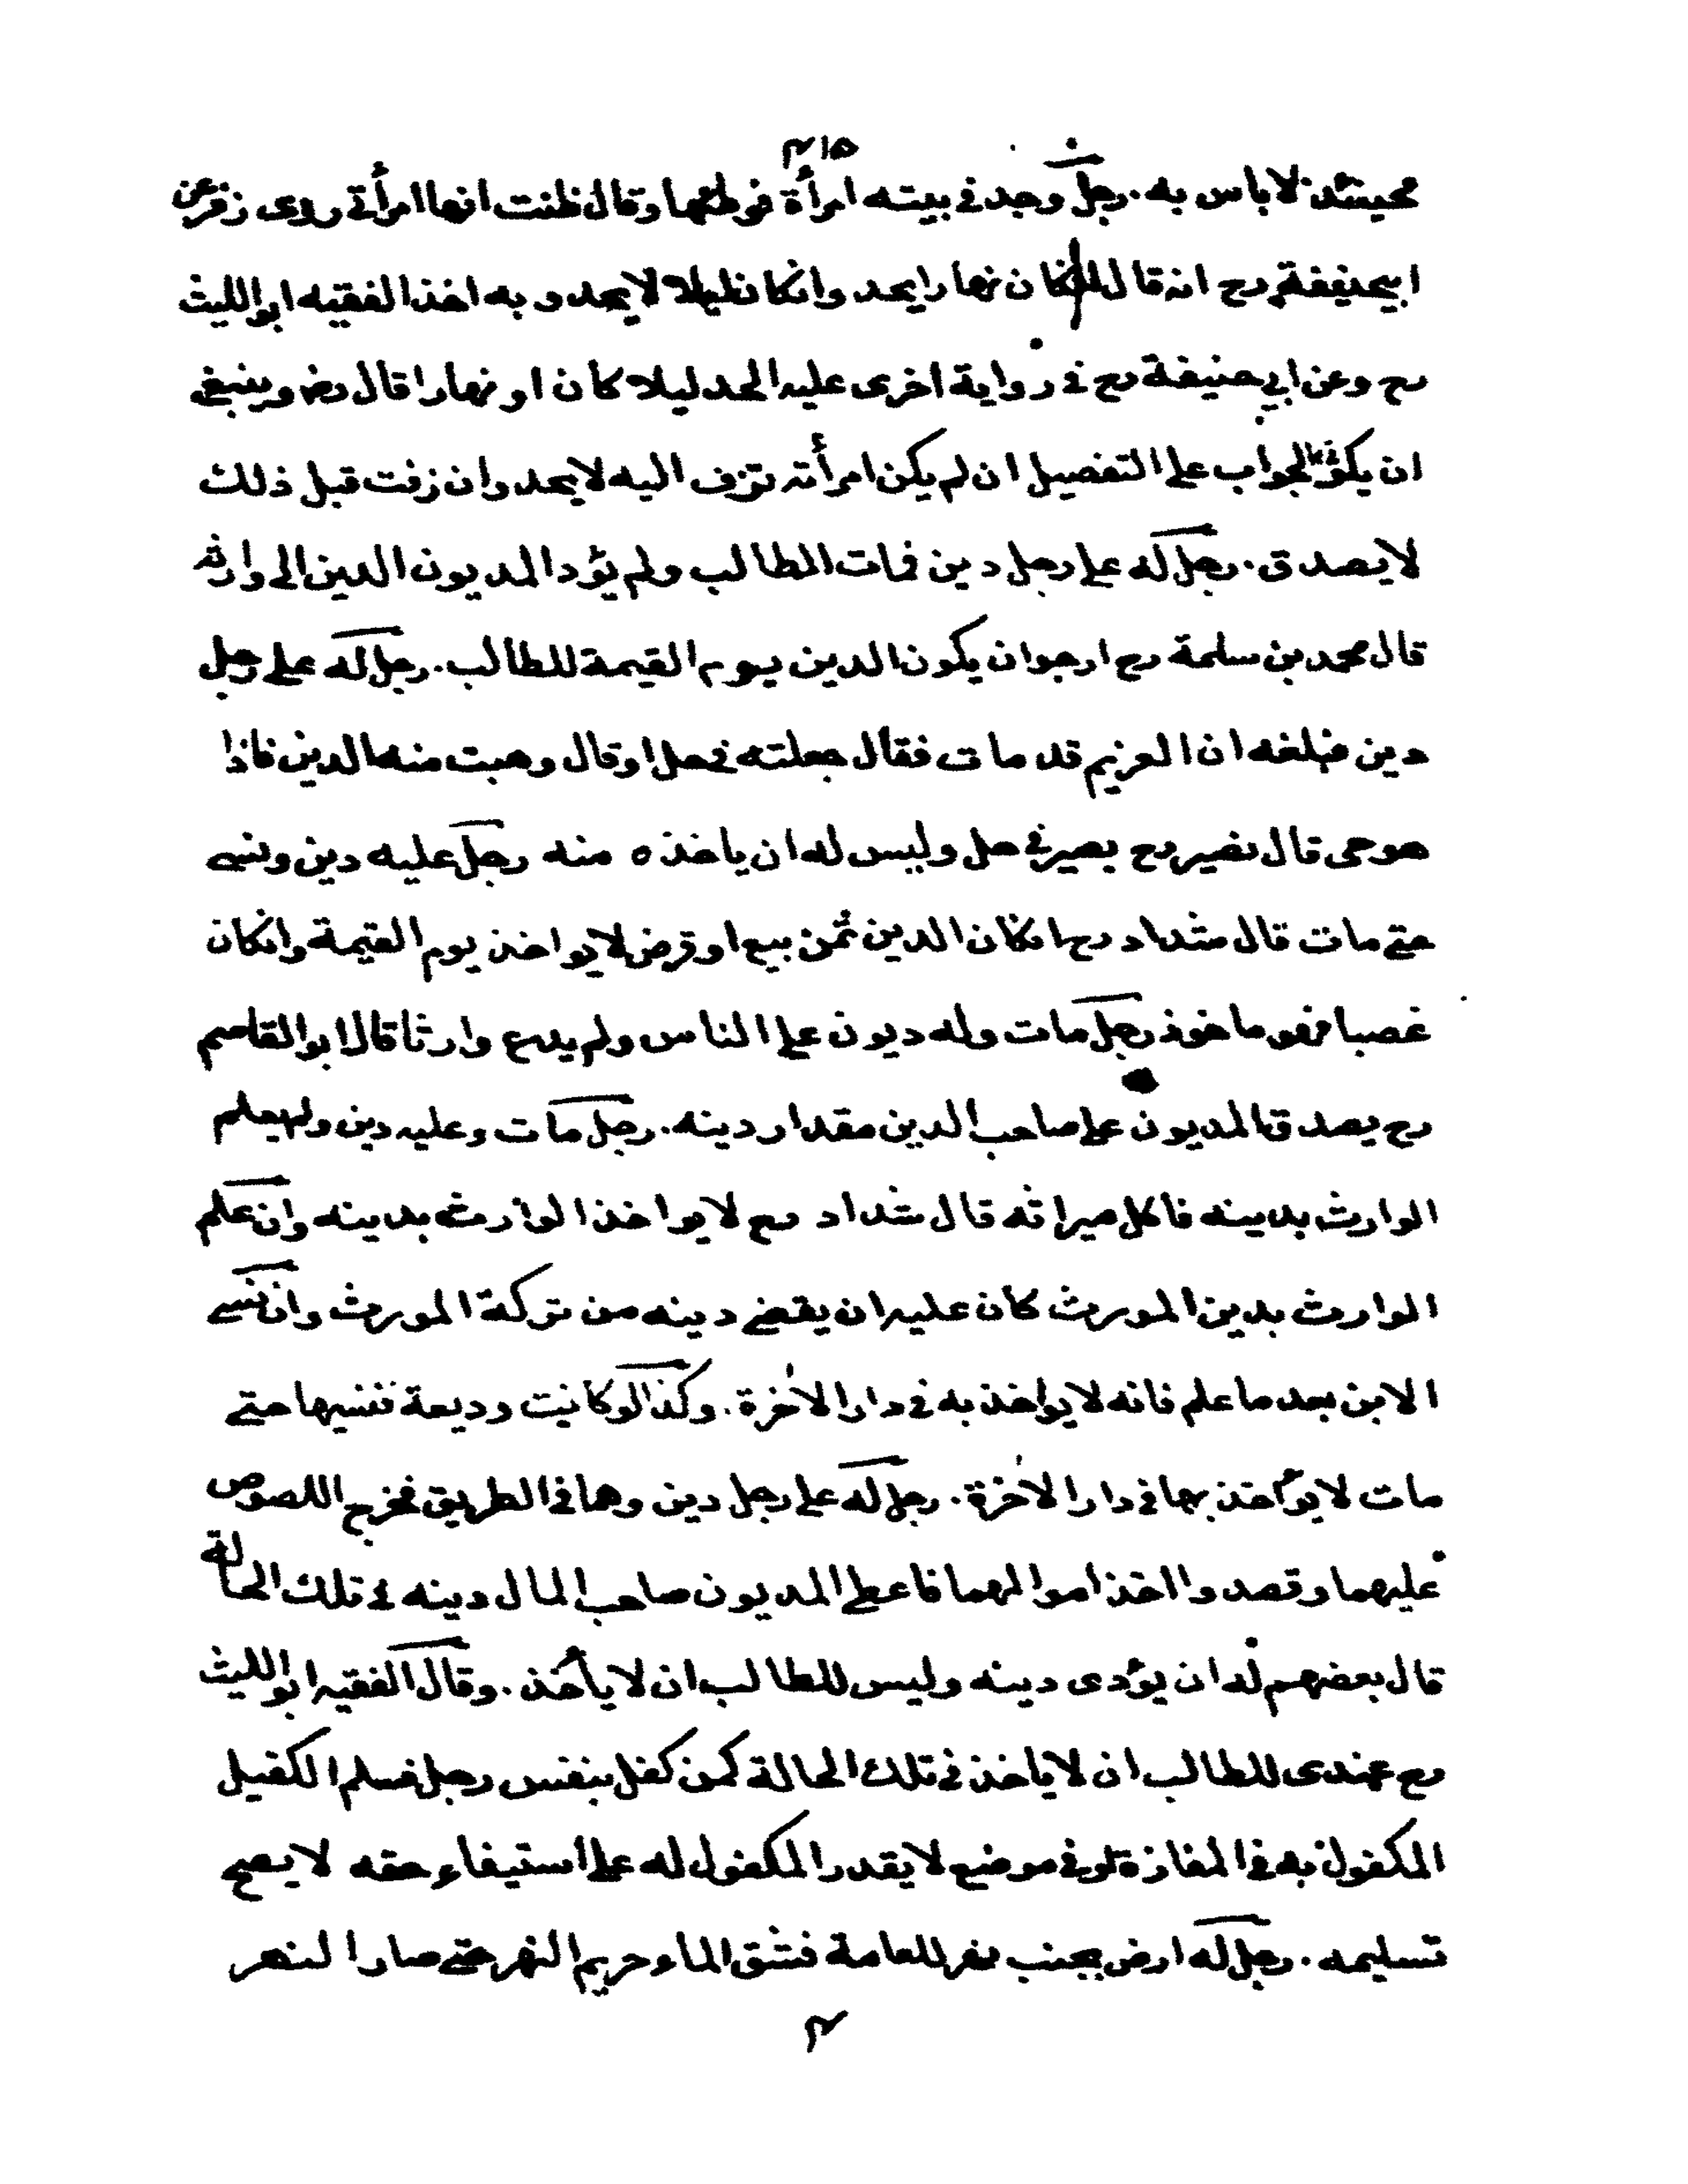 ٤١٥
فحينئذ لاباس به . رجل وجد في بيته امرأة فوطئها وقال ظننت انها امرأتي روى زفر عن
ابيحنيفة رح انه قال ان كان نهارا يحد وانكان ليلا لا يحد و به اخذ الفقيه ابو الليث
رح وعن ابي حنيفة رح في رواية اخرى عليه الحد ليلا كان او نهارا قال رض وينبغي
ان يكون الجواب على التفصيل ان لم يكن امرأته تزف اليه لا يحد وان زفت قبل ذلك
لا يصدق . رجل له على رجل دين فمات الطالب ولم يؤد المديون الدين الى وارثه
قال محمد بن سلمة رح ارجوان يكون الدين يوم القيمة للطالب . رجل له على رجل
دين فبلغه ان الغريم قد مات فقال جعلته في حل او قال وهبت منه الدين فاذا
هو حى قال نصير رح يصير في حل وليس له ان ياخذه منه رجل عليه دين ونسي
حتى مات قال شداد رح انكان الدين ثمن بيع او قرض لا يواخذ يوم القيمة وانكان
غصبا فهو ماخوذ رجل مات وله ديون على الناس ولم يدع وارثا قال ابو القاسم
رح يصدق المديون على صاحب الدين مقدار دينه . رجل مات وعليه دين ولم يعلم
الوارث بدينه فاكل ميراثه قال شداد رح لا يواخذ الوارث بدينه وان علم
الوارث بدين المورث كان عليه ان يقضي دينه من تركة المورث وان نسي
الابن بعد ما علم فانه لا يواخذ به في دار الاخرة . وكذا لو كانت وديعة فنسيها حتى
مات لا يؤاخذ بها في دار الاخرة . رجل له على رجل دين وهما في الطريق فخرج اللصوص
عليهما وقصدوا اخذ اموالهما فاعطى المديون صاحب المال دينه في تلك الحالة
قال بعضهم له ان يؤدى دينه وليس للطالب ان لا يأخذ . وقال الفقيه ابو الليث
رح عندى للطالب ان لا ياخذ في تلك الحالة كمن كفل بنفس رجل فسلم الكفيل
المكفول به في المفازة او في موضع لا يقدر المكفول له على استيفاء حقه لا يصح
تسليمه . رجل له ارض بجنب نهر للعامة فشق الماء حريم النهر حتى صار النهر